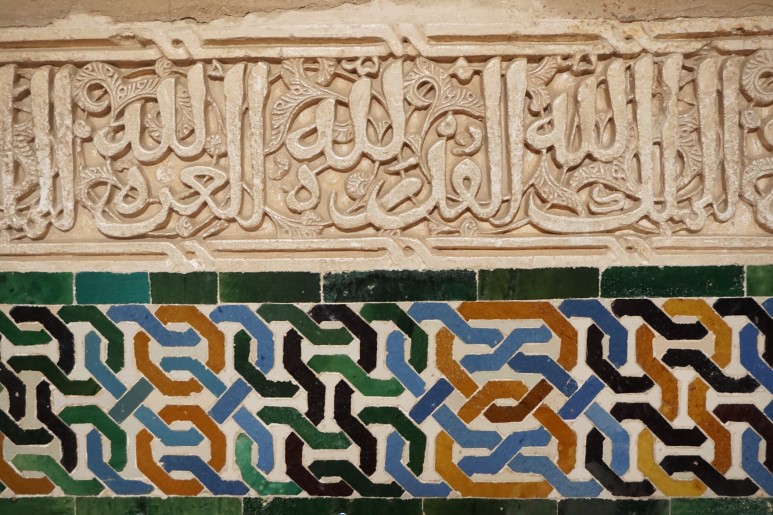 الملك لله القدرة لله العزة لله